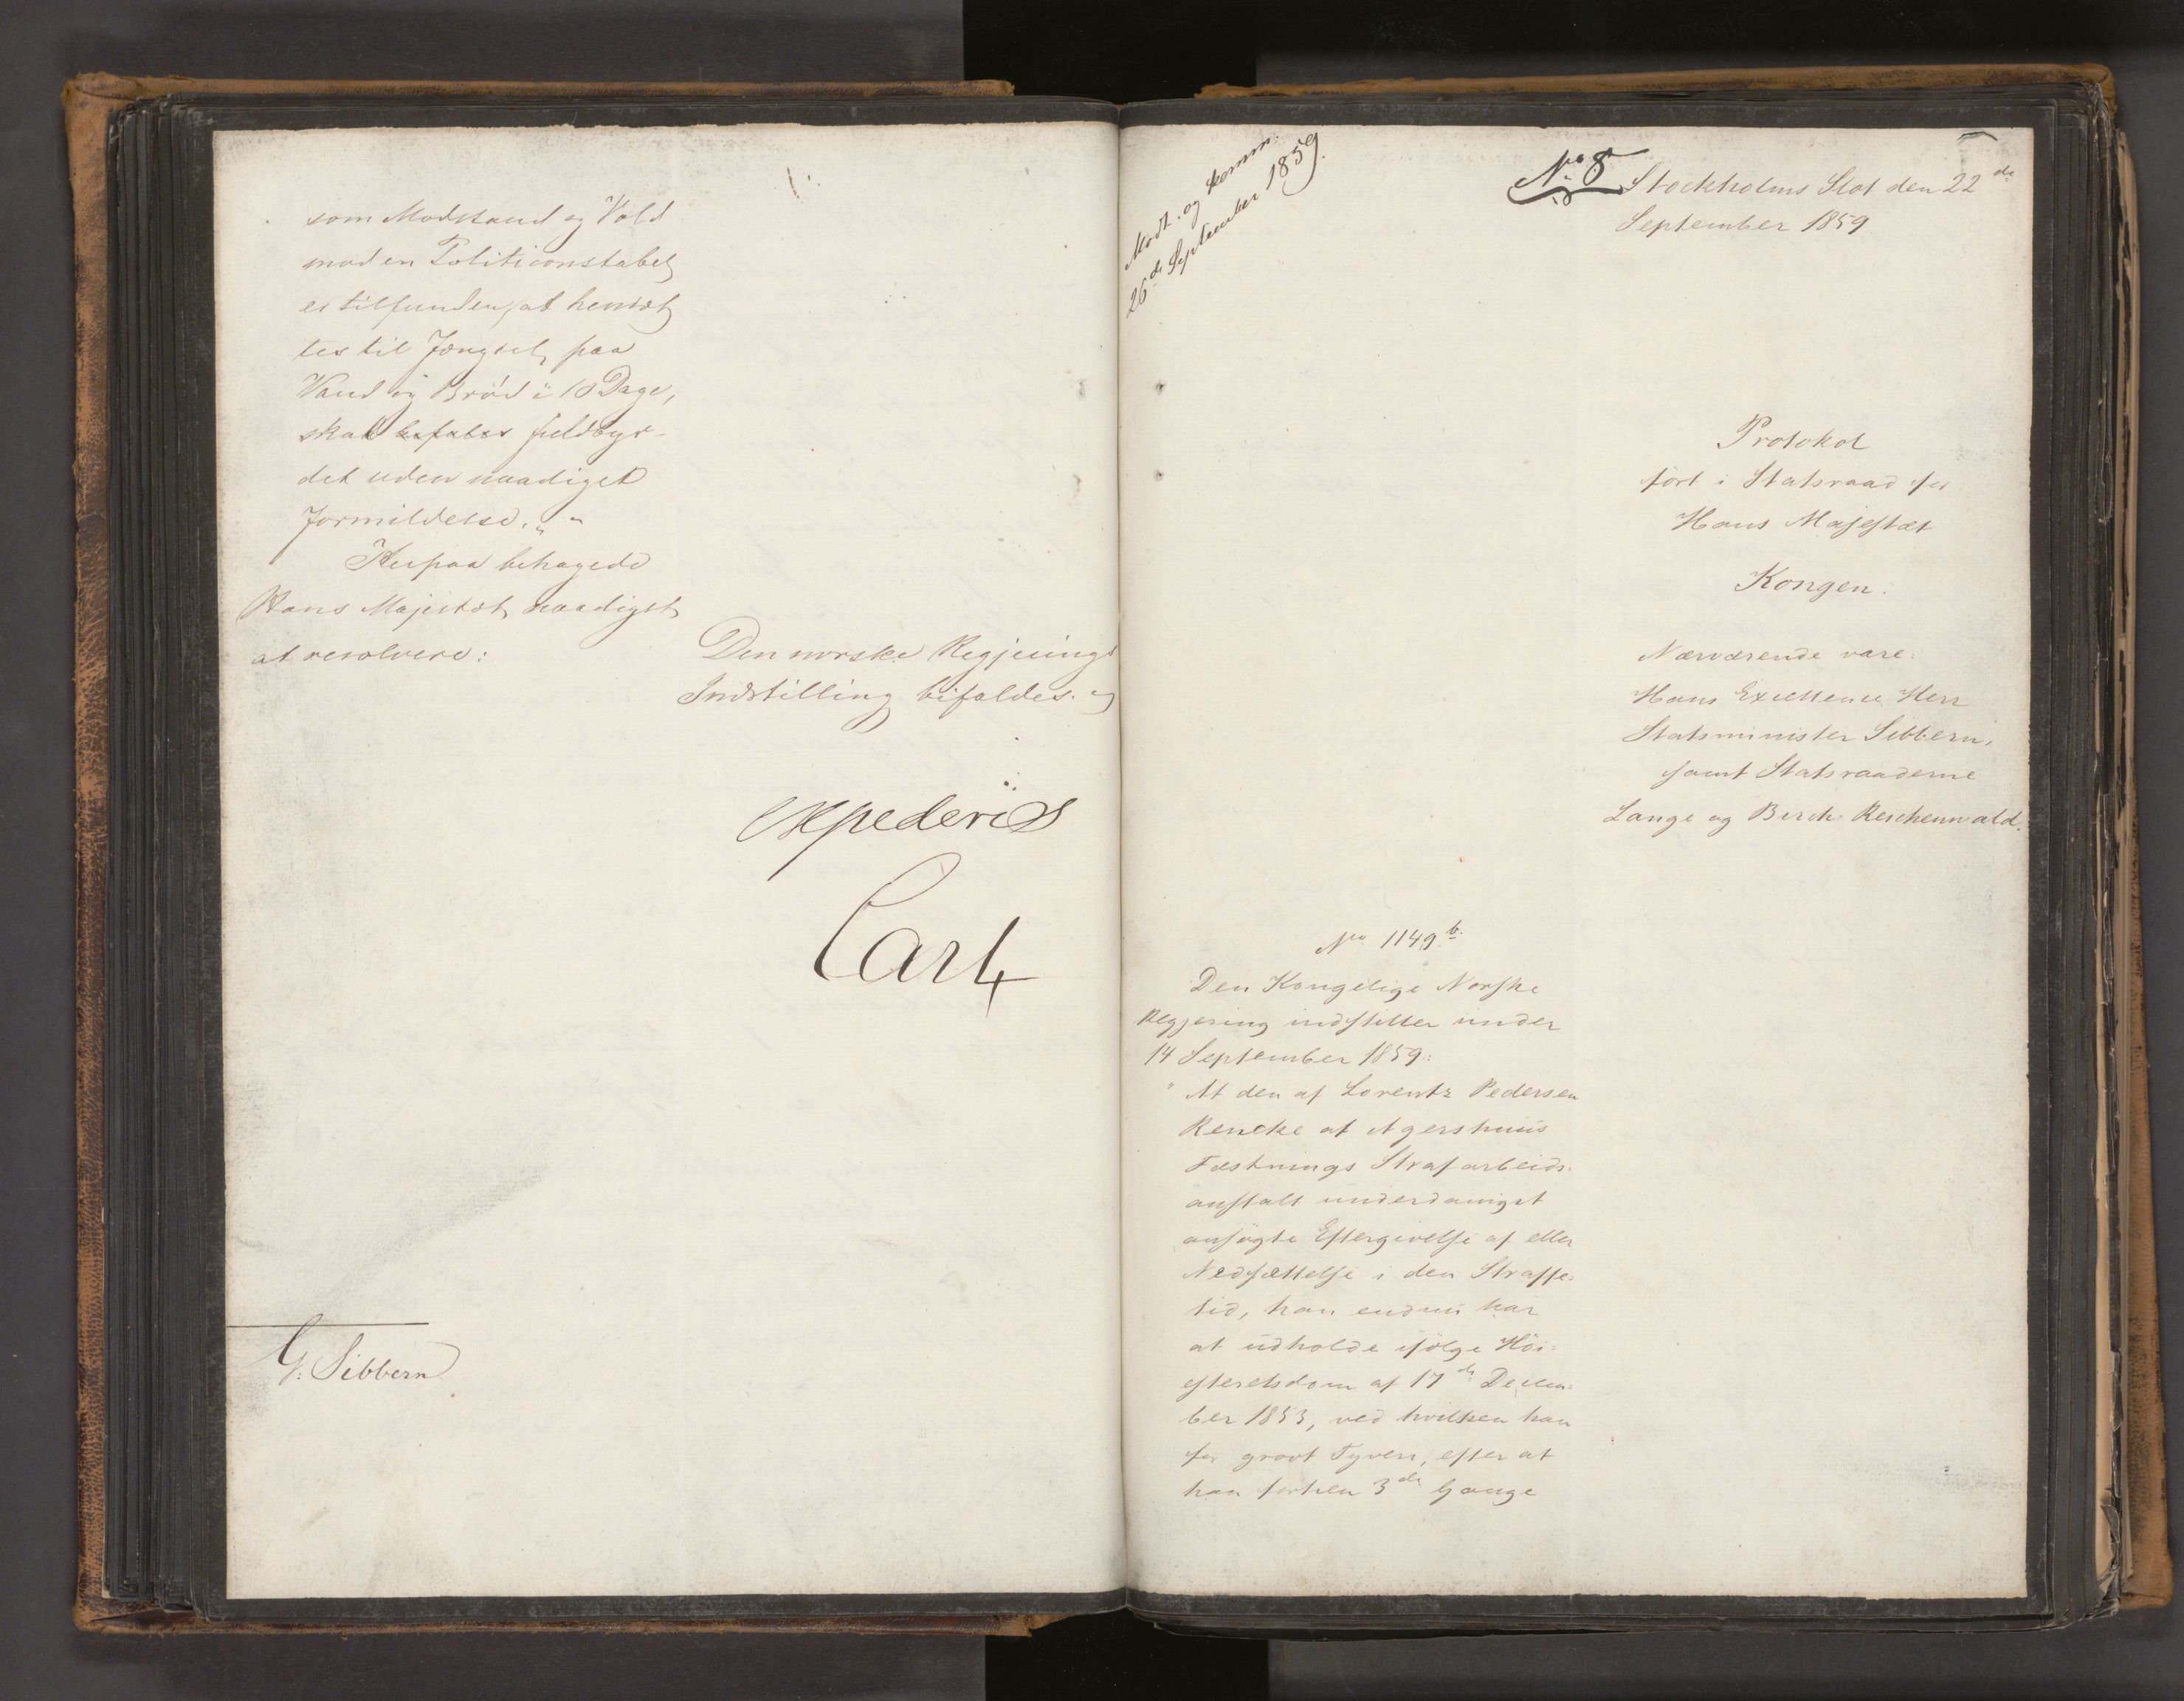 som Modstand og Vold
mod en Politiconstabel
er tilfunden, at hensæt
tes til Fængsel paa
Vand og Brød i 10 Dage,
skal befales fuldbyr-
det uden naadigst
Formildelse. "
Herpaa behagede
Hans Majestæt naadigst
at resolvere:
Den norske Regjerings
Indstilling bifaldes.
expederes
Carl
G: Sibbern
Modt. og komm:
26de September 1859.
No 8
Stockholms Slot den 22de
September 1859
Protokol
ført i Statsraad for
Hans Majestæt
Kongen.
Nærværende vare:
Hans Excellence Herr
Statsminister Sibbern,
samt Statsraaderne
Lange og Birch-Reichenwald.
No 1149 b.
Den Kongelige Norske
Regjering indstiller under
14 September 1859:
" At den af Lorentz Pedersen
Rencke af Agershuus
Fæstnings Strafarbeids-
anstalt underdanigst
ansøgte Eftergivelse af eller
Nedsættelse i den Straffe-
tid, han endnu har
at udholde ifølge Høi-
esteretsdom af 17de Decem-
ber 1853, ved hvilken han
for grovt Tyveri, efter at
han forhen 3de Gange